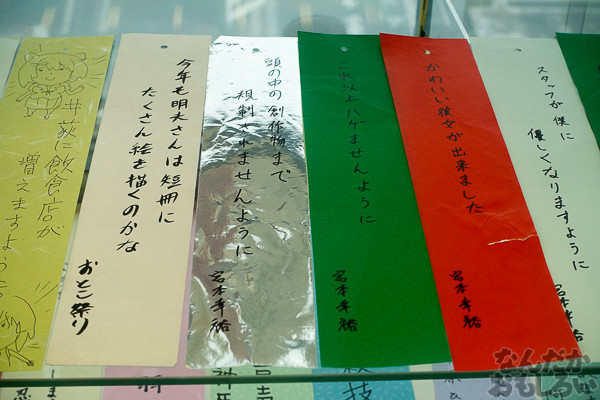 スタッフが僕に
優しくなりますように
宮本幸裕
かわいい彼女が出来ました
宮本幸裕
これ以上ハゲませんように
宮本幸裕
頭の中の創作物まで
規制されませんように
宮本幸裕
今年も明夫さんは短冊に
たくさん絵を描くのかな
おとこ祭り
井荻に飲食店が
増えますよう
なんだか
おもしろい